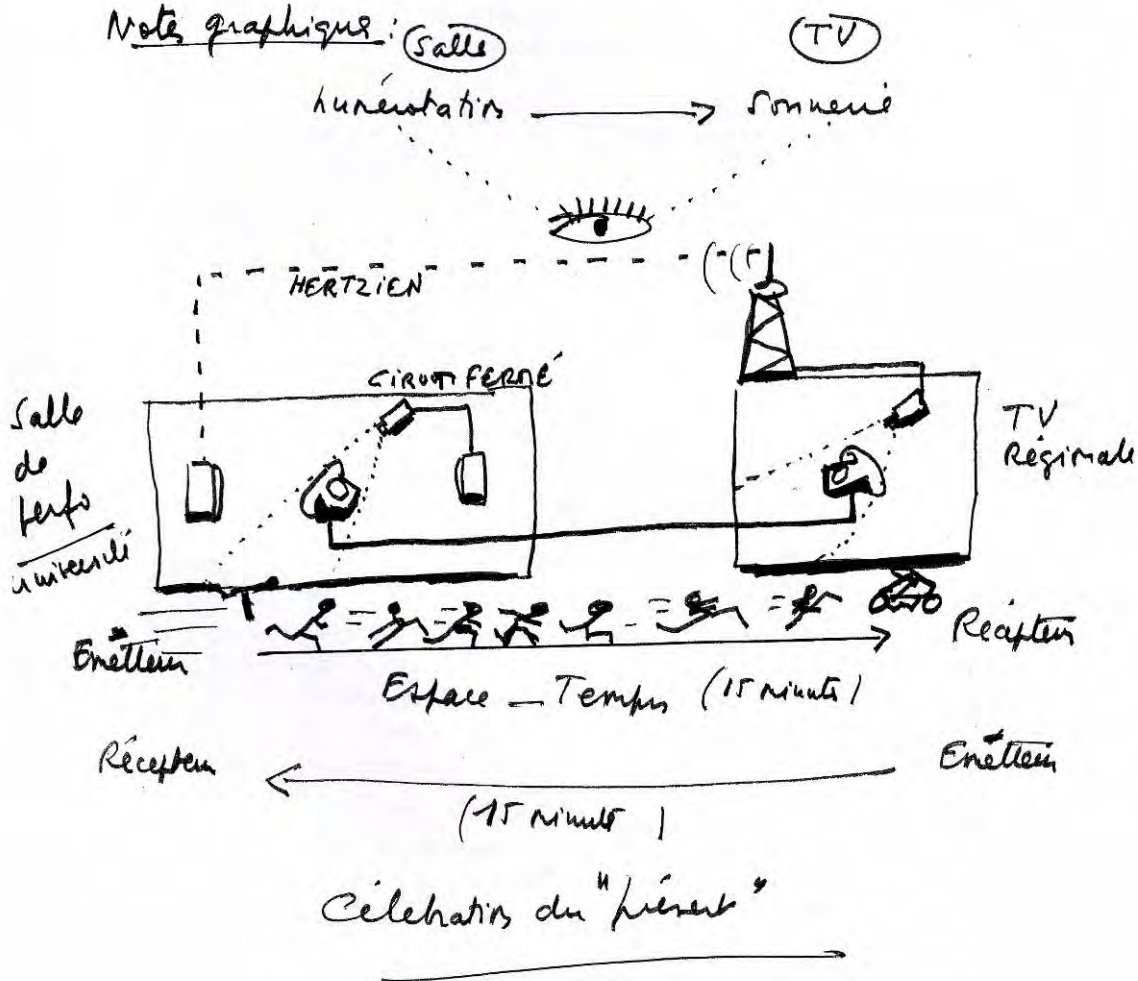 Notes graphique : Salle TV
numérotation Sonnerie
HERTZIEN
CIRCUIT FERMÉ
Salle
de
perfo
université
TV
Régionale
Emetteur
Récepteur
Espace - Temps (15 minute)
Récepteur
Emetteur
(15 minute)
Célébration du "présent"